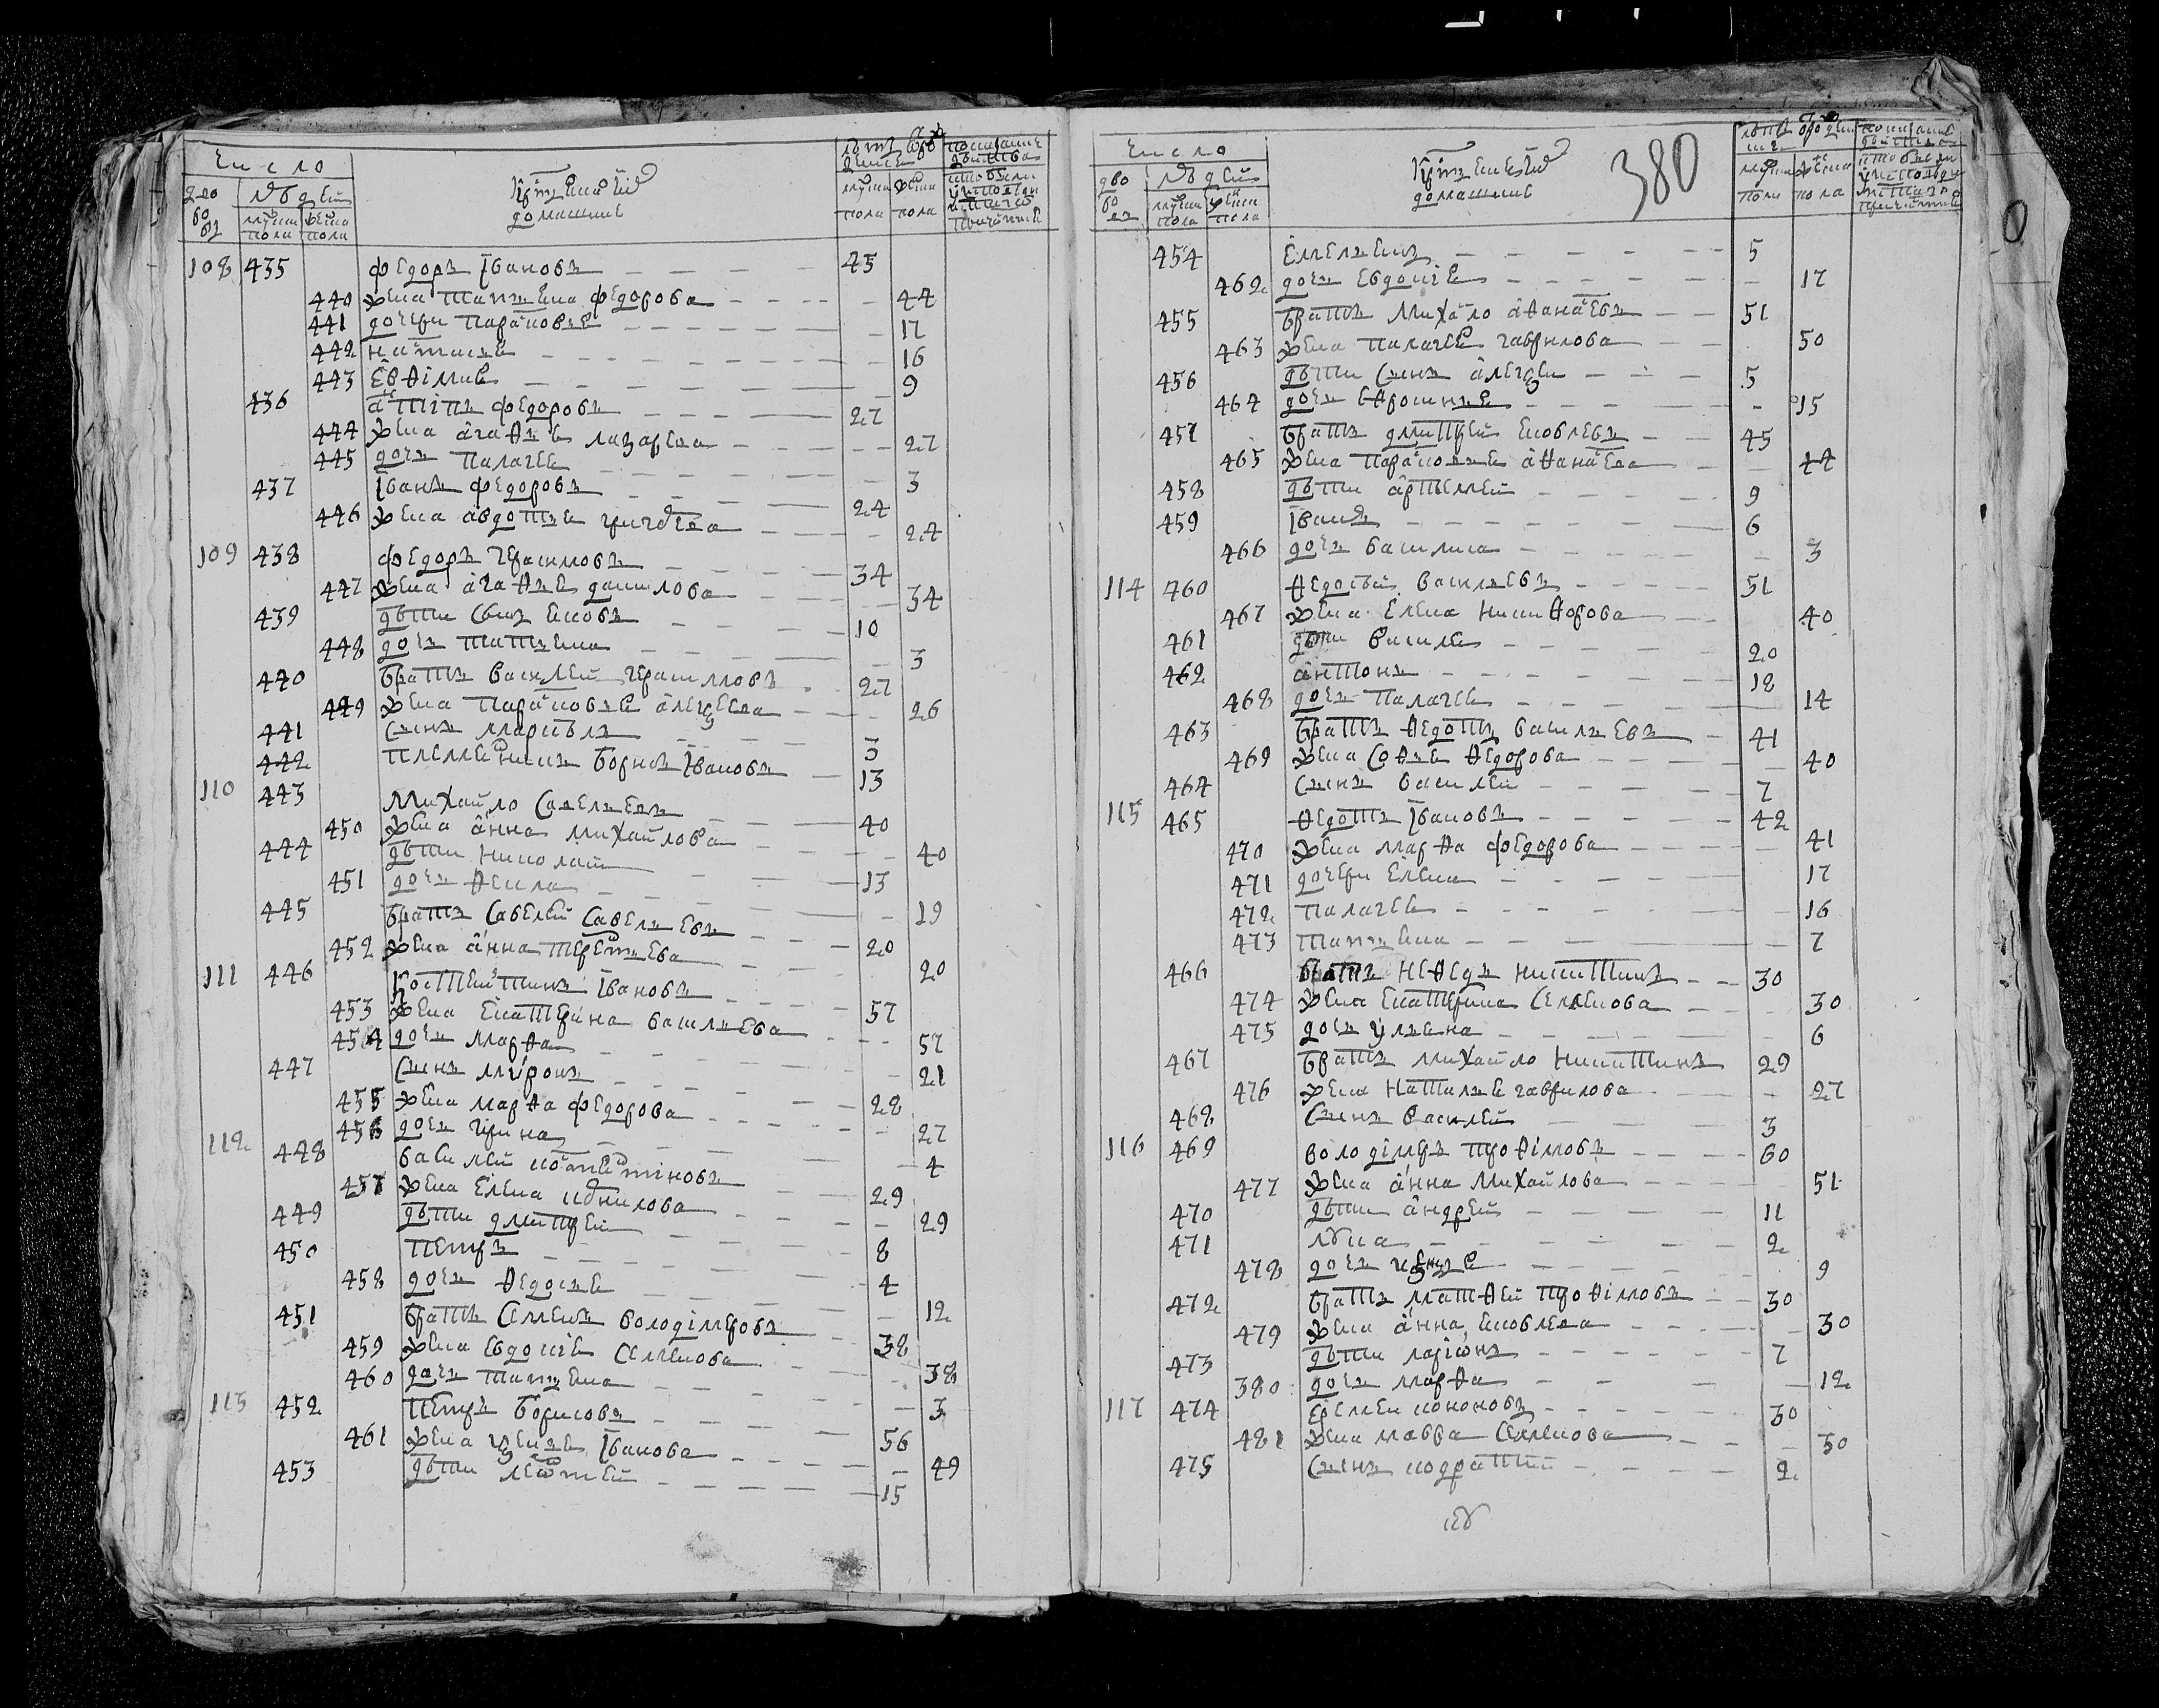 Число
дво
ро
въ
людей
мужеска
пола
женска
пола
Крестьяне и ихъ
домашние
лета от рождения
мужеска
пола
женска
пола
108 435 федоръ Iвановъ 45
440 жена татьяна федорова 44
441 дочери парасковья 17
442 наталья 16
443 евѳiмия 9
436 антiпъ федоровъ 27
444 жена агаѳья лазарева 27
445 дочь палагея 3
437 Iванъ федоровъ 24
446 жена авдотья григорева 24
109 438 федоръ герасимовъ 34
447 жена агаѳья данилова 34
439 дѣти сынъ яковъ 10
448 дочь татьяна 3
440 братъ василей герасимовъ 27
449 жена парасковья алексеева 26
441 сынъ маркѣлъ 3
442 племенникъ борисъ Iвановъ 13
110 443 михайло савельевъ 40
450 жена анна михайлова 40
444 дѣти николай 13
451 дочь ѳекла 19
445 братъ савелей савельевъ 20
452 жена анна терентьева 20
111 446 костентинъ Iвановъ 57
453 жена екатерина васильева 57
454 дочь марѳа 21
447 сынъ мѵронъ 28
455 жена марѳа федорова 27
456 дочь ирина 4
112 448 василей костентiновъ 29
457 жена елена корнилова 29
449 дѣти дмитрей 8
450 петръ 4
458 дочь ѳедосья 12
451 братъ семенъ володiмеровъ 38
459 жена евдокiя семенова 38
460 дочь татьяна 3
113 452 петръ борисовъ 56
461 жена ксенья Iванова 49
453 дѣти леонтей 15
Число
дво
ро
въ
людей
мужеска
пола
женска
пола
Крестьяне и ихъ
домашние
380
лета от рождения
мужеска
пола
женска
пола
454 емельянъ 5
462 дочь евдокiя 17
455 братъ михайло аѳанасевъ 51
463 жена палагея гаврилова 50
456 дѣти сынъ алексей 5
464 дочь еѳросинья 15
457 братъ дмитрей яковлевъ 45
465 жена парасковья аѳанасева 44
458 дѣти артемей 9
459 Iванъ 6
466 дочь василиса 3
114 460 ѳедосѣй васильевъ 51
467 жена елена никиѳорова 40
461 дѣти василей 20
462 антонъ 18
468 дочь палагея 14
463 братъ ѳедотъ васильевъ 41
469 жена соѳья ѳедорова 40
464 сынъ василей 7
115 465 ѳедотъ Iвановъ 42
470 жена марѳа федорова 41
471 дочери елена 17
472 палагея 16
473 татьяна 7
466 братъ неѳедъ никитинъ 30
474 жена екатерина семенова 30
475 дочь ульяна 6
467 братъ михайло никитинъ 29
476 жена наталья гаврилова 27
468 сынъ василей 3
116 469 володiмеръ троѳiмовъ 60
477 жена анна михайлова 51
470 дѣти андрей 11
471 лука 2
478 дочь ксенья 9
472 братъ матѳей троѳiмовъ 30
479 жена анна яковлева 30
473 дѣти ларiонъ 7
380 дочь марѳа 12
117 474 евсевей кононовъ 30
481 жена мавра семенова 30
475 сынъ кодратий 2